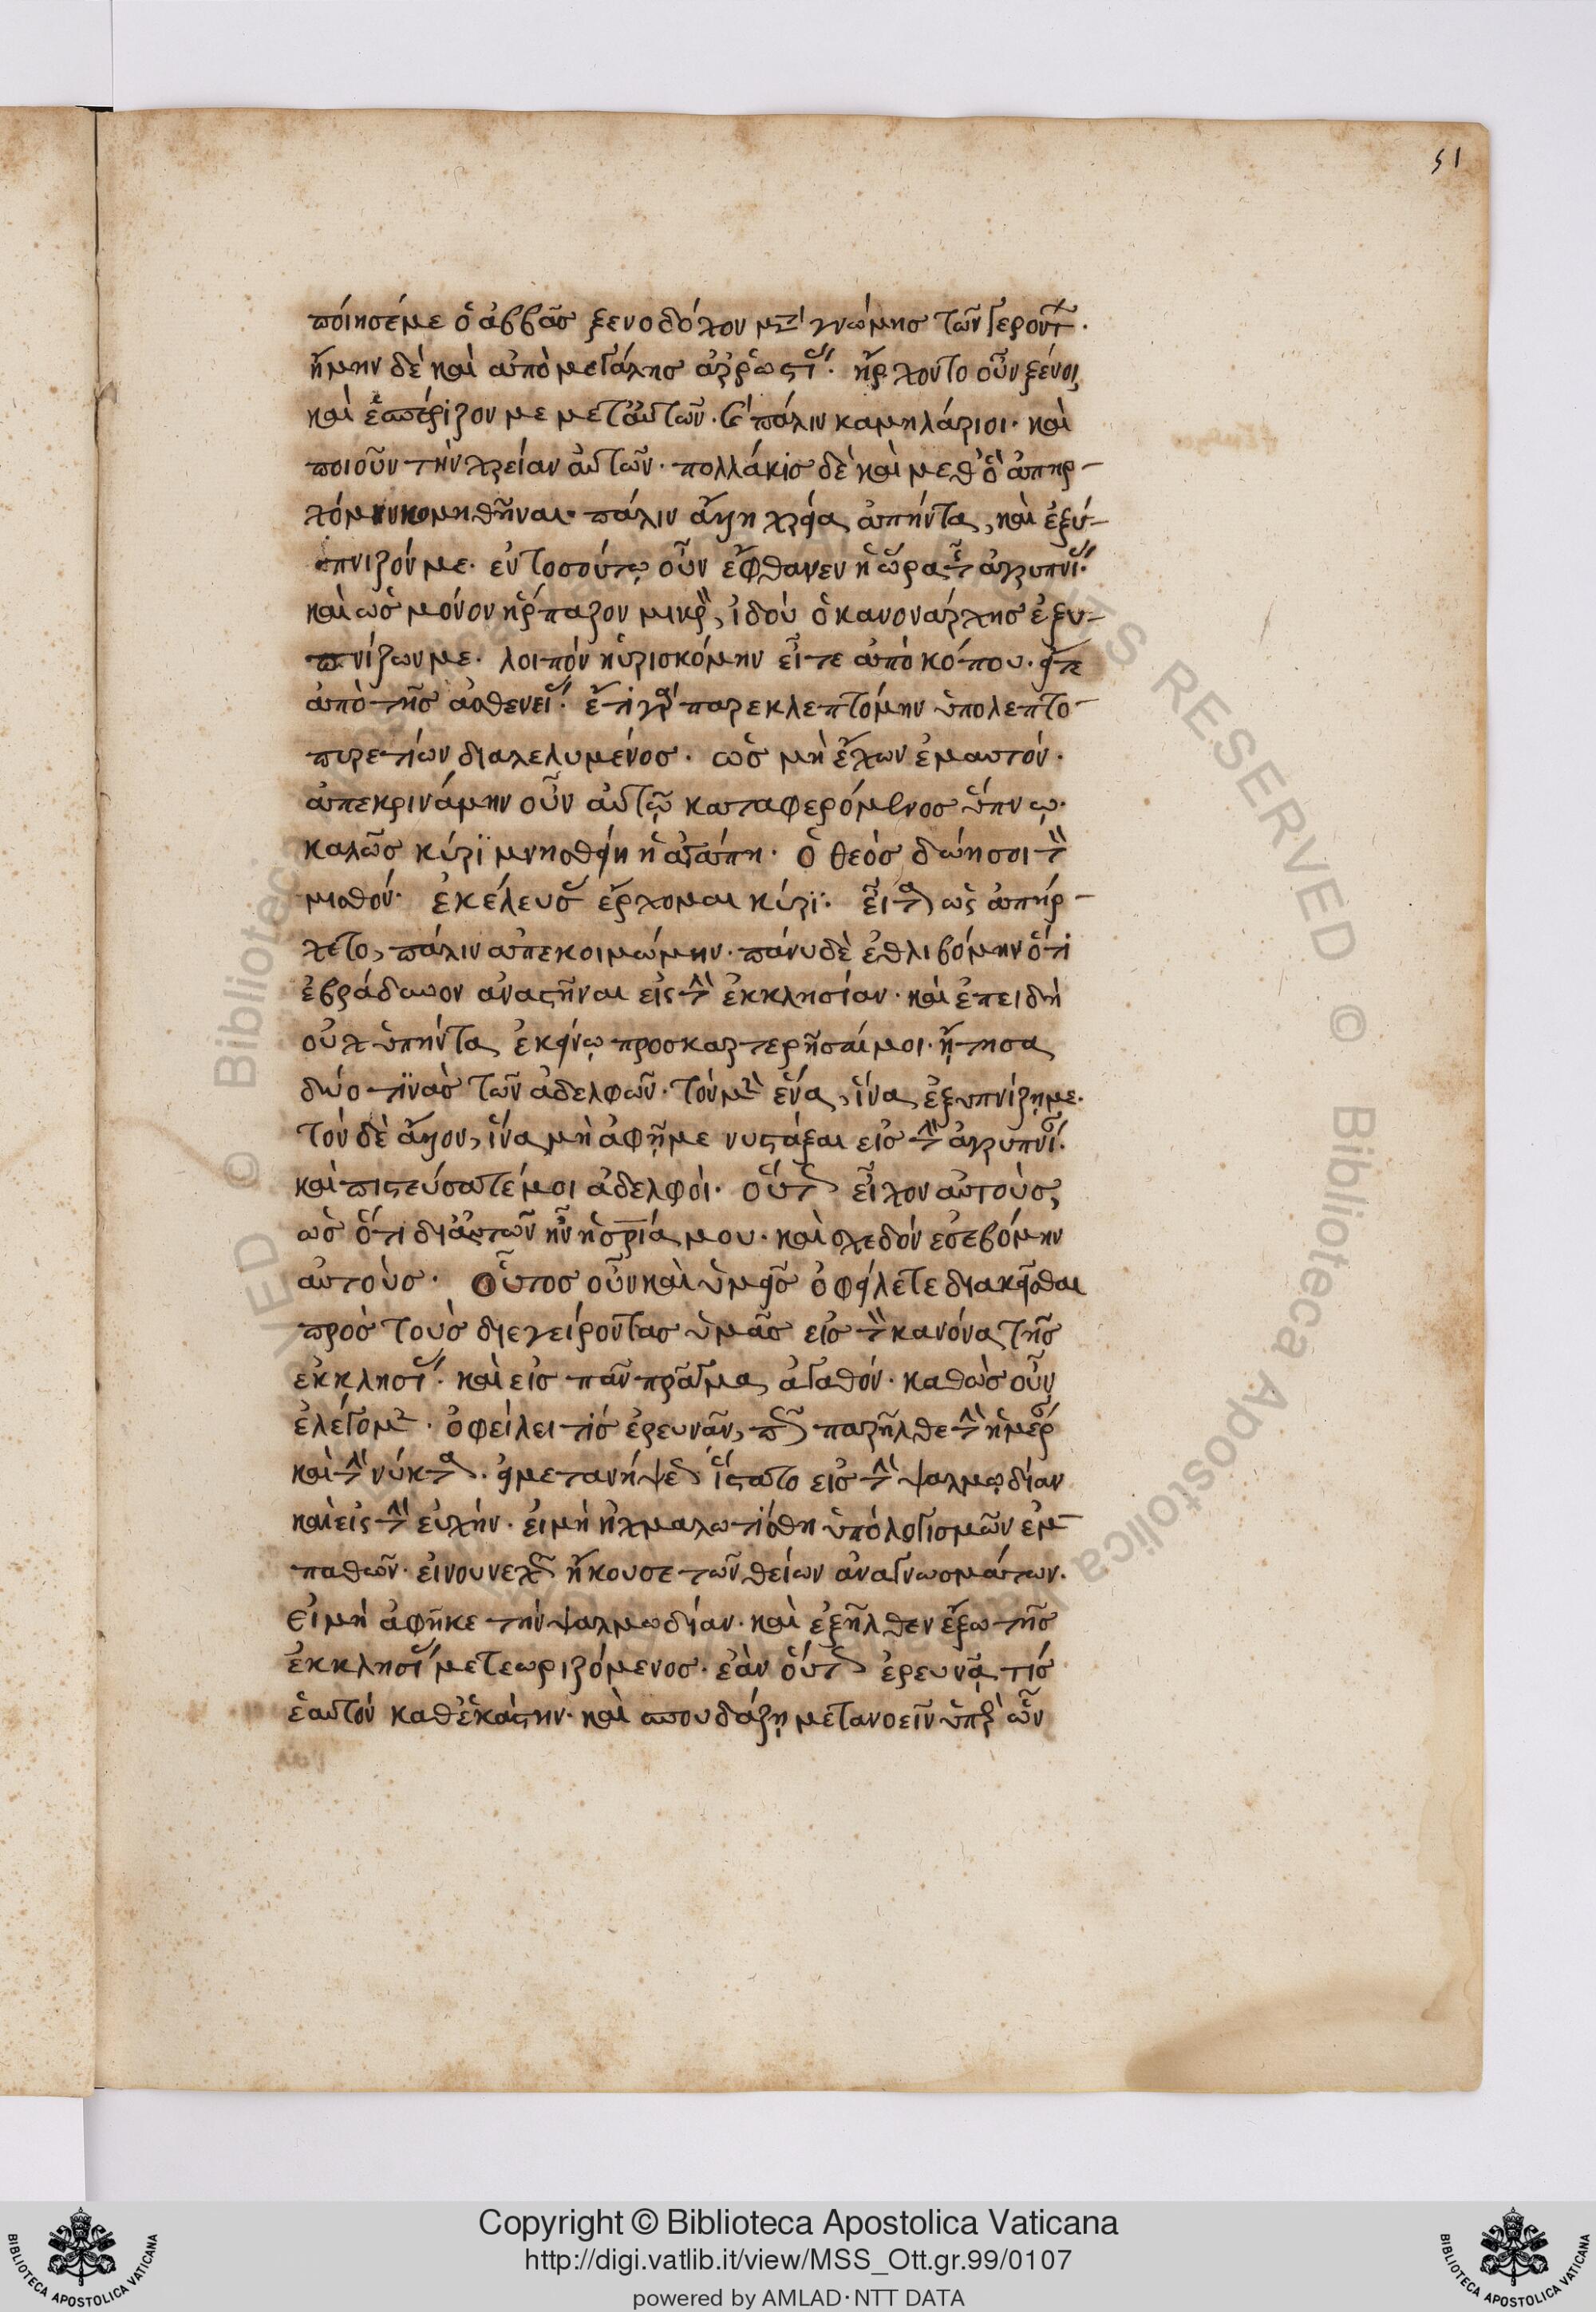 51
ποίησέμε ὁ ἀββᾶς ξενοδόχον μετὰ γνώμης τῶν γερόντ.
ἤμην δὲ καὶ ἀπὸ μεγάλης ἀρρωστί. ἤρχοντο οὖν ξένοι
καὶ ἑσπέριζον με μετ᾽αὐτῶν. εἶτα πάλιν καμηλάριοι. καὶ
ποιοῦν τὴν χρείαν αὐτῶν. πολλάκις δὲ καὶ μεθ᾽ὃ ἀπηρ-
χόμην κοιμηθῆναι. πάλιν ἄλλη χρεία ἀπήντα, καὶ ἐξύ-
πνιζόν με. ἐν τοσούτῳ οὖν ἔφθανεν ἡ ὥρα τῆς ἀγρυπνί.
καὶ ὡς μόνον ἥρπαζον μικρὸν, ἰδοὺ ὁ κανονάρχης ἐξυ-
πνίζων με. λοιπὸν ηὑρισκόμην εἴτε ἀπὸ κόπου. εἴτε
ἀπὸ τῆς ἀσθενεί. ἔτι γὰρ παρεκλεπτόμην ὑπὸ λεπτο
πυρετίων διαλελυμένος. ὡς μὴ ἔχων ἐμαυτόν.
ἀπεκρινάμην οὖν αὐτῷ καταφερόμενος ὕπνῳ.
καλῶς κύρϊ μνησθείη ἡ ἀγάπη. ὁ θεὸς δώῃ σοι τὸν
μισθόν. ἐκέλευσας ἔρχομαι κύρϊ. εἶτα ὡς ἀπήρ-
χετο, πάλιν ἀπεκοιμώμην. πάνυ δὲ ἐθλιβόμην ὅτι
ἐβράδυνον ἀναστῆναι εἰς τὴν ἐκκλησίαν. καὶ ἐπειδὴ
οὐχ ὑπήντα ἐκείνῳ προσκαρτερῆσαί μοι. ᾔτησα
δύο τϊνὰς τῶν ἀδελφῶν. τὸν μὲν ἕνα, ἵνα ἐξυπνίζῃ με.
τὸν δὲ ἄλλον, ἵνα μὴ ἀφῇ με νυστάξαι εἰς τὴν ἀγρυπνΐ.
καὶ πιστεύσατέ μοι ἀδελφοὶ. οὕτως εἶχον αὐτοὺς,
ὡς ὅτι δι᾽αὐτῶν ἦν ἡ σρία μου. καὶ σχεδὸν ἐσεβόμην
αὐτοὺς. Οὗτος οὖν καὶ ὑμεῖς ὀφείλετε διακεῖσθαι
πρὸς τοὺς διεγείροντας ὑμᾶς εἰς τὸν κανόνα τῆς
ἐκκλησί. καὶ εἰς πᾶν πρᾶγμα ἀγαθόν. καθὼς οὖν
ἐλέγομεν. ὀφείλει τίς ἐρευνᾶν, πῶς παρῆλθε τὴν ἡμέρ
καὶ τὴν νύκτα. εἰ μετὰ νήψεως ἵστατο εἰς τὴν ψαλμῳδίαν
καὶ εἰς τὴν εὐχήν. εἰ μὴ ἠχμαλωτίσθη ὑπὸ λογισμῶν ἐμ-
παθῶν. εἰ νουνεχῶς ἤκουσε τῶν θείων ἀναγνωσμάτων.
Εἰ μὴ ἀφῆκε τὴν ψαλμωδίαν. καὶ ἐξῆλθεν ἔξω τῆς
ἐκκλησί μετεωριζόμενος. ἐὰν οὕτως ἐρευνᾷ τίς
ἑαυτόν καθ᾽ἑκάστην. καὶ σπουδάζῃ μετανοεῖν ὑπὲρ ὧν
Copyright © Biblioteca Apostolica Vaticana
http://digi.vatlib.it/view/MSS_Ott.gr.99/0107
powered by AMLAD·NTT DATA
BIBLIOTECA APOSTOLICA VATICANA
BIBLIOTECA APOSTOLICA VATICANA